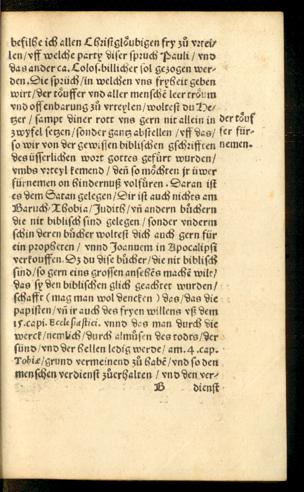 befilhe ich allen Christglöubigen fry zů vrtei-
len/vff welche party diser spruch Pauli/vnd
das ander ca. Colos. billicher sol gezogen wer-
den. Die sprüch/in welchen vns fryheit geben
wirt/der töuffer vnd aller menschē leer tröum
vnd offenbarung zů vrteylen/woltest du Ke-
tzer/sampt diner rott vns gern nit allein in
zwyfel setzen/sonder gantz abstellen/vff das/
so wir von der gewissen biblischen gschrifften
des üsserlichen wort gottes gefürt wurden/
vmbs vrteyl kemend/deñ so möchten jr üwer
fürnemen on hindernuß volfüren. Daran ist
es dem Satan gelegen/Dir ist auch nichts am
Baruch/Thobia/Judith/vñ andern büchern
die nit biblisch sind gelegen/sonder vnderm
schin deren bücher woltest dich auch gern für
ein propheten/vnnd Joannem in Apocalipsi
verkouffen. Dz du dise bücher/die nit biblisch
sind/so gern eins grossen ansehēs machē wilt/
das sy den biblischen glich geachtet wurden/
schafft (mag man wol dencken) das/das die
papisten/vñ ir auch des fryen willens vß dem
15. capi. Ecclesiastici. vnnd das man durch die
werck/nemlich/durch almůsen des todts/der
sünd/vnd der hellen ledig werde/am. 4. cap.
Tobiæ/grund vermeinend zů habē/vnd so den
menschen verdienst zůerhalten/vnd den ver-
B dienst
der töuf
fer für-
nemen.